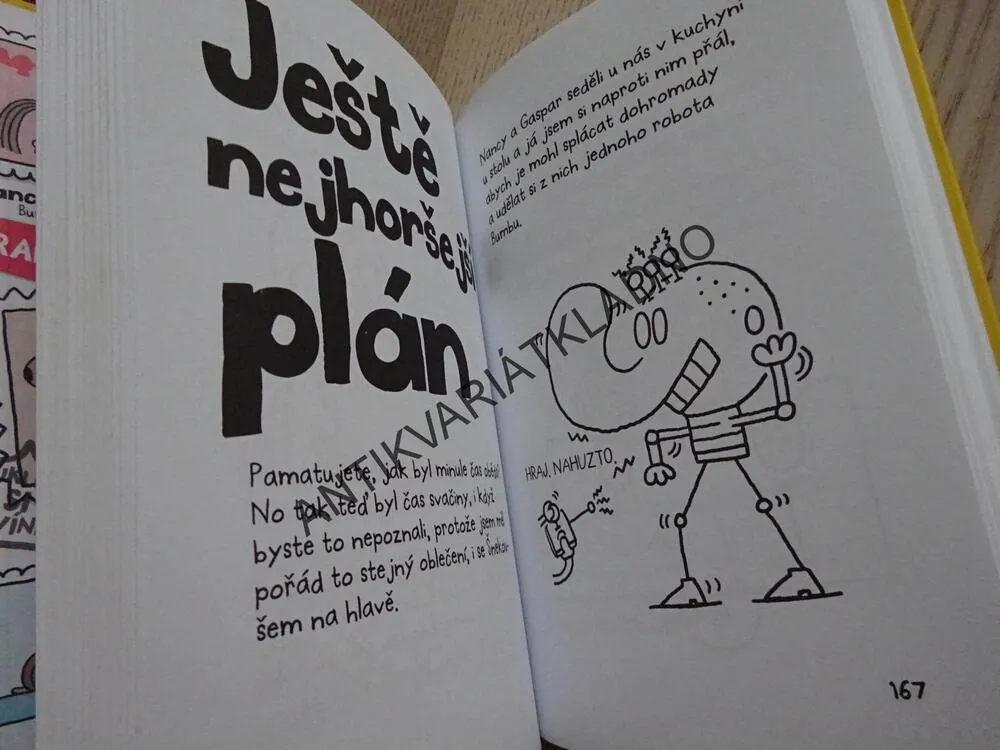 Ještě
nejhorše jší
plán
Pamatujete, jak byl minule čas oběda?
No tak teď byl čas svačiny, i když
byste to nepoznali, protože jsem měl
pořád to stejný oblečení, i se Šnekou-
šem na hlavě.
Nancy a Gaspar seděli u nás v kuchyni
u stolu a já jsem si naproti nim přál,
abych je mohl splácat dohromady
a udělat si z nich jednoho robota
Bumbu.
HRAJ. NAHUZTO.
167
ANTIKVARIÁTKLADNO